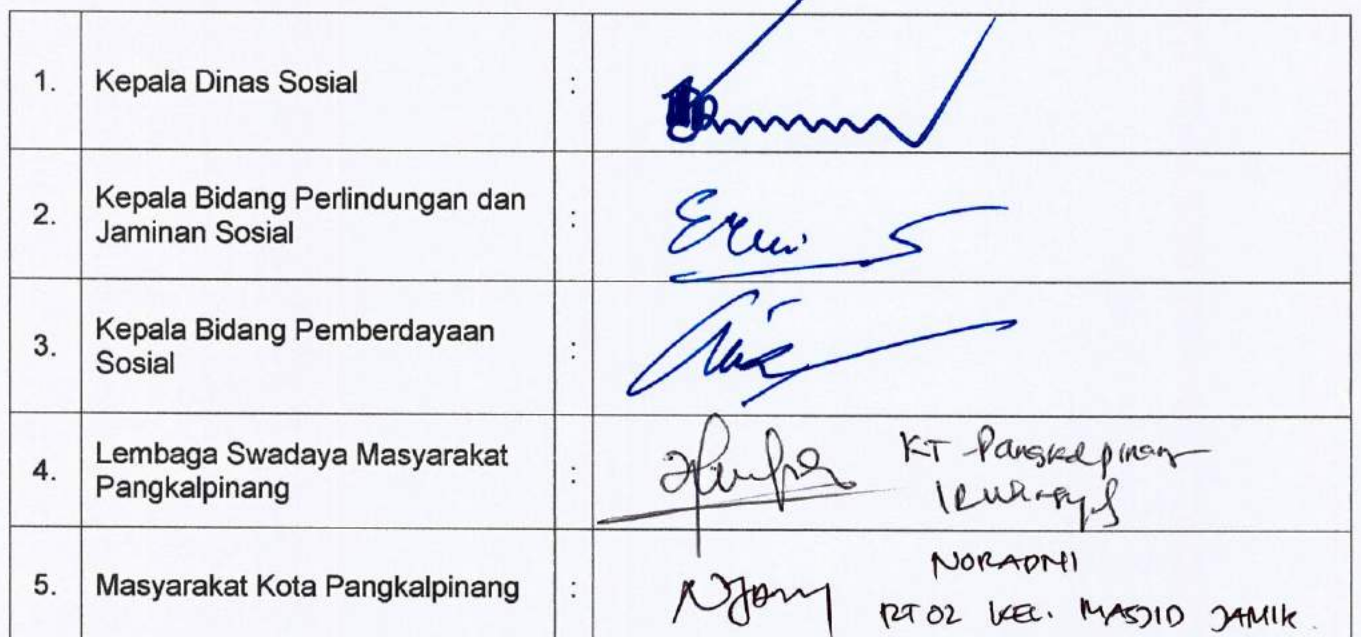 1. Kepala Dinas Sosial :
2. Kepala Bidang Perlindungan dan
Jaminan Sosial :
3. Kepala Bidang Pemberdayaan
Sosial :
4. Lembaga Swadaya Masyarakat
Pangkalpinang :
KT Pangkalpinang
5. Masyarakat Kota Pangkalpinang :
NORADNI
RT 02 KEL. MASJID JAMIK.